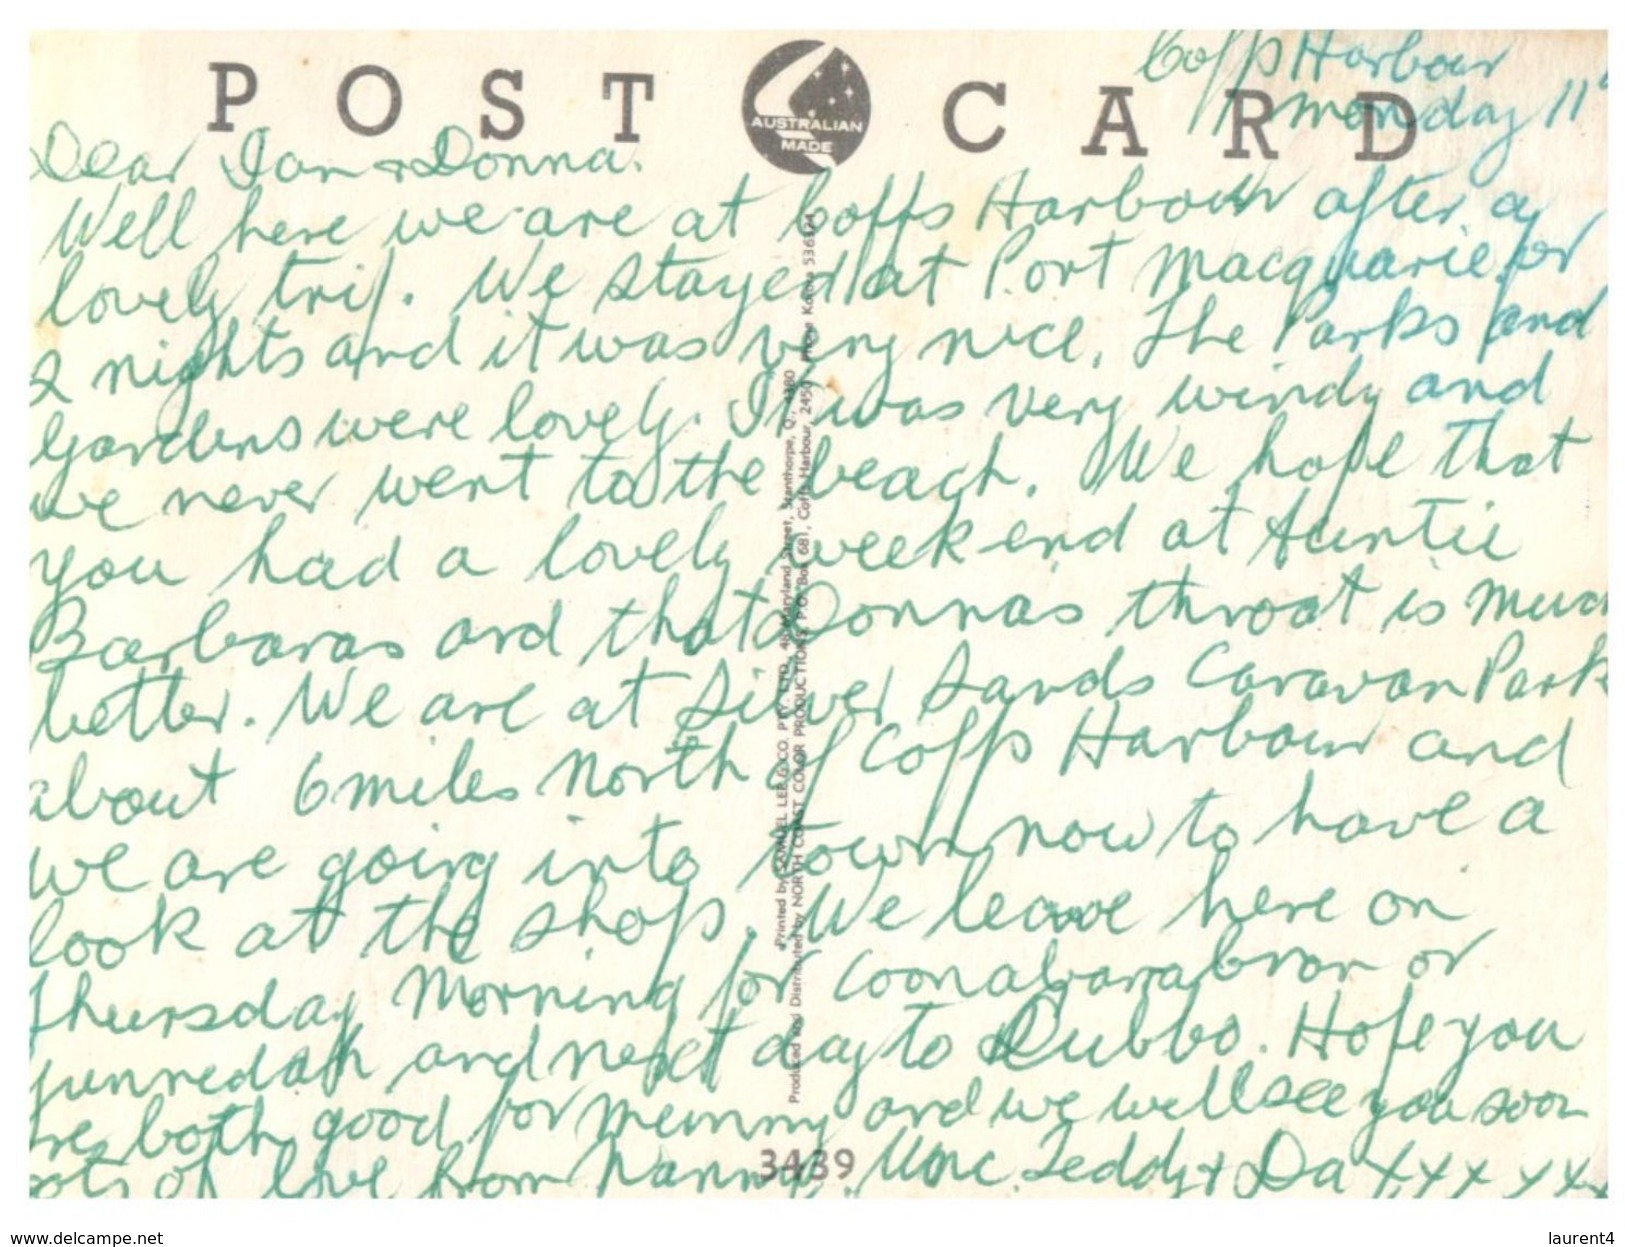 Coffs Harbour
Monday 11
POST CARD
AUSTRALIAN
MADE
Dear Ian & Donna.
Well here we are at Coffs Harbour after a
lovely trip. We stayed at Port Macquarie for
2 nights and it was very nice. The Parks and
Gardens were lovely. It was very windy and
we never went to the beach. We hope that
you had a lovely weekend at Auntie
Barbaras and that Donnas throat is much
better. We are at Silver Sands Caravan Park
about 6 miles North of Coffs Harbour and
we are going into town now to have a
look at the shops. We leave here on
Thursday Morning for Coonabarabran or
Gunnedah and next day to Dubbo. Hope you
are both good for Mummy and we will see you soon
Lots of love from Nanny, Unc Teddy & Da xxxxx
Printed by SAMUEL LEE & CO. PTY. LTD., Maryland Street, Stanthorpe, Q., 4380
Produced and Distributed by NORTH COAST COLOR PRODUCTIONS, P.O. Box 681, Coffs Harbour, 2450
3439
www.delcampe.net
laurent4